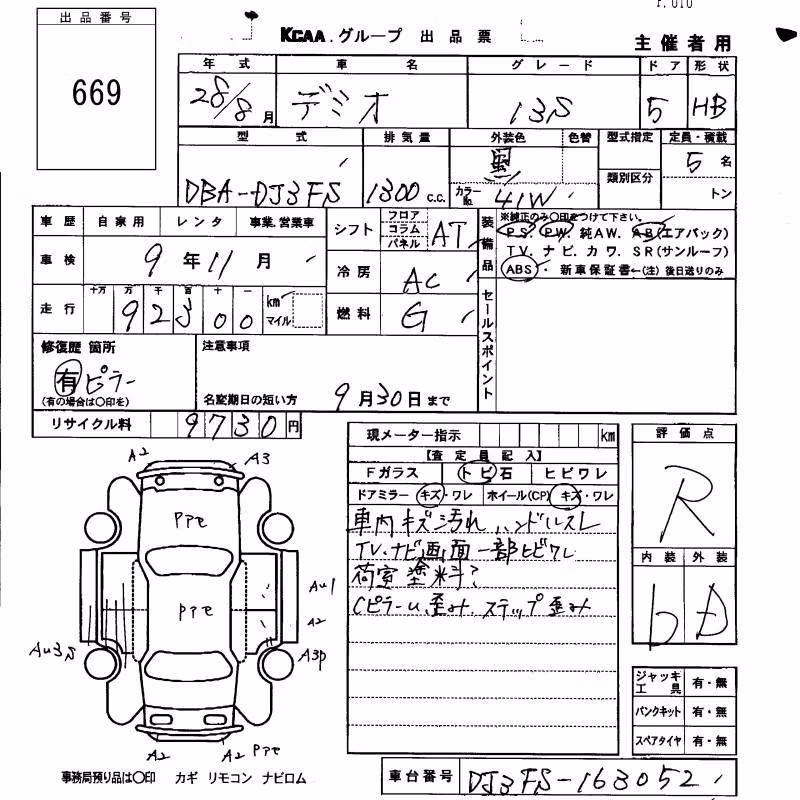 出品番号
669
KCAA.グループ 出品票
主催者用
年式 車名 グレード ドア 形状
28/8月 デミオ 13S 5 HB
型式 排気量 外装色 色替 型式指定 定員・積載
黒 類別区分 5名
DBA-DJ3FS 1300c.c. カラーNo. 41W トン
車歴 自家用 レンタ 事業.営業車
車検 9年11月
走行 十万 万 千 百 十 一
92300 km マイル
シフト フロア コラム パネル AT
冷房 AC
燃料 G
装備品
※純正のみ〇印をつけて下さい。
PS. PW. 純AW. AB(エアバック)
TV. ナビ. カワ. SR(サンルーフ)
ABS・新車保証書←(注)後日送りのみ
セールスポイント
修復歴 箇所
有 ピラー
(有の場合は〇印を)
注意事項
名変期日の短い方 9月30日まで
リサイクル料 9730円
現メーター指示 km
【査定員記入】
Fガラス トビ石 ヒビワレ
ドアミラー キズ・ワレ ホイール(CP) キズ・ワレ
車内キズ汚れ ハンドルスレ
TV.ナビ画面一部ヒビワレ
荷室塗料?
Cピラーu.歪み.ステップ歪み
評価点
R
内装 外装
b D
ジャッキ工具 有・無
パンクキット 有・無
スペアタイヤ 有・無
A2 A3
PPて
PPて
Au1
A2
Au3S A3P
A2 A2 PPて
事務局預り品は〇印 カギ リモコン ナビロム
車台番号 DJ3FS-163052